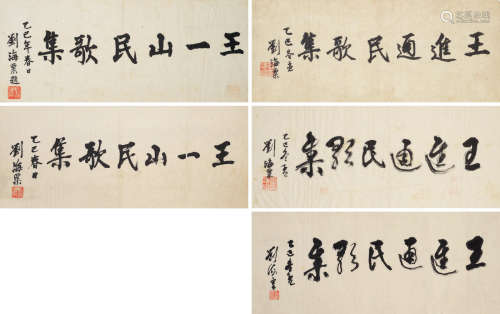 王一山民歌集
乙巳年春日
劉海粟題
王一山民歌集
乙巳春日
劉海粟
王進通民歌集
乙巳
劉海粟
王進通民歌集
乙巳
劉海粟
王進通民歌集
乙巳
劉海粟